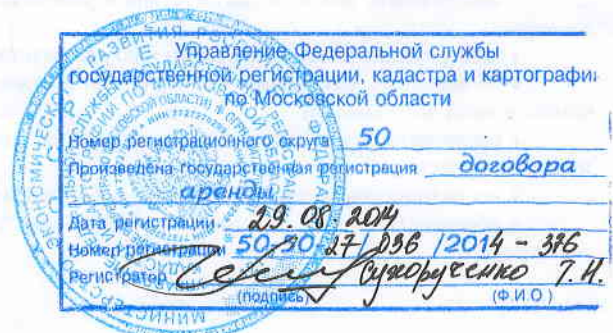 Управление Федеральной службы
государственной регистрации, кадастра и картографии
по Московской области
Номер регистрационного округа 50
Произведена государственная регистрация договора
аренды
Дата регистрации 29.08.2014
Номер регистрации 50-50-27/036/2014-376
Регистратор Сухорученко Т.Н.
(подпись) (Ф.И.О)